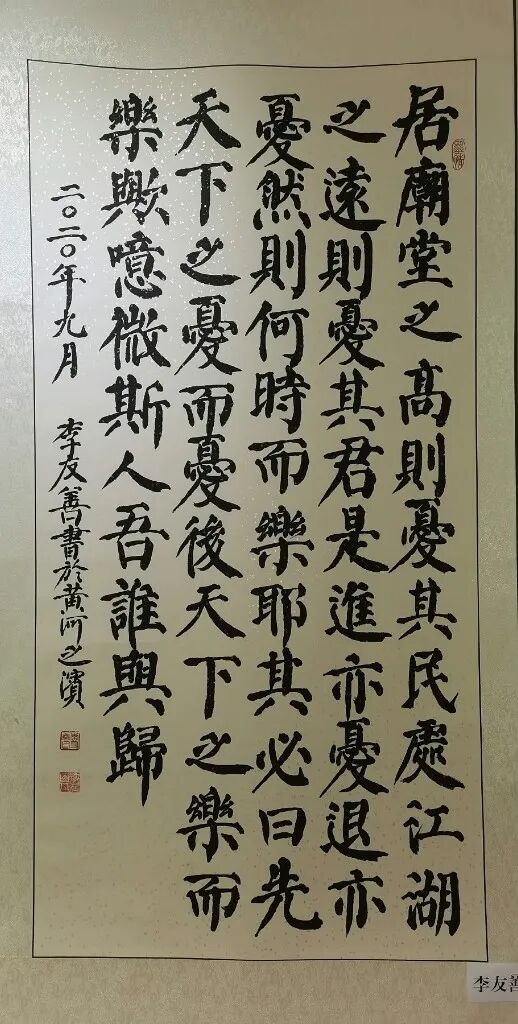 居廟堂之高則憂其民處江湖
之遠則憂其君是進亦憂退亦
憂然則何時而樂耶其必曰先
天下之憂而憂後天下之樂而
樂歟噫微斯人吾誰與歸
二〇二〇年九月 李友善書於黄河之濱
李友善